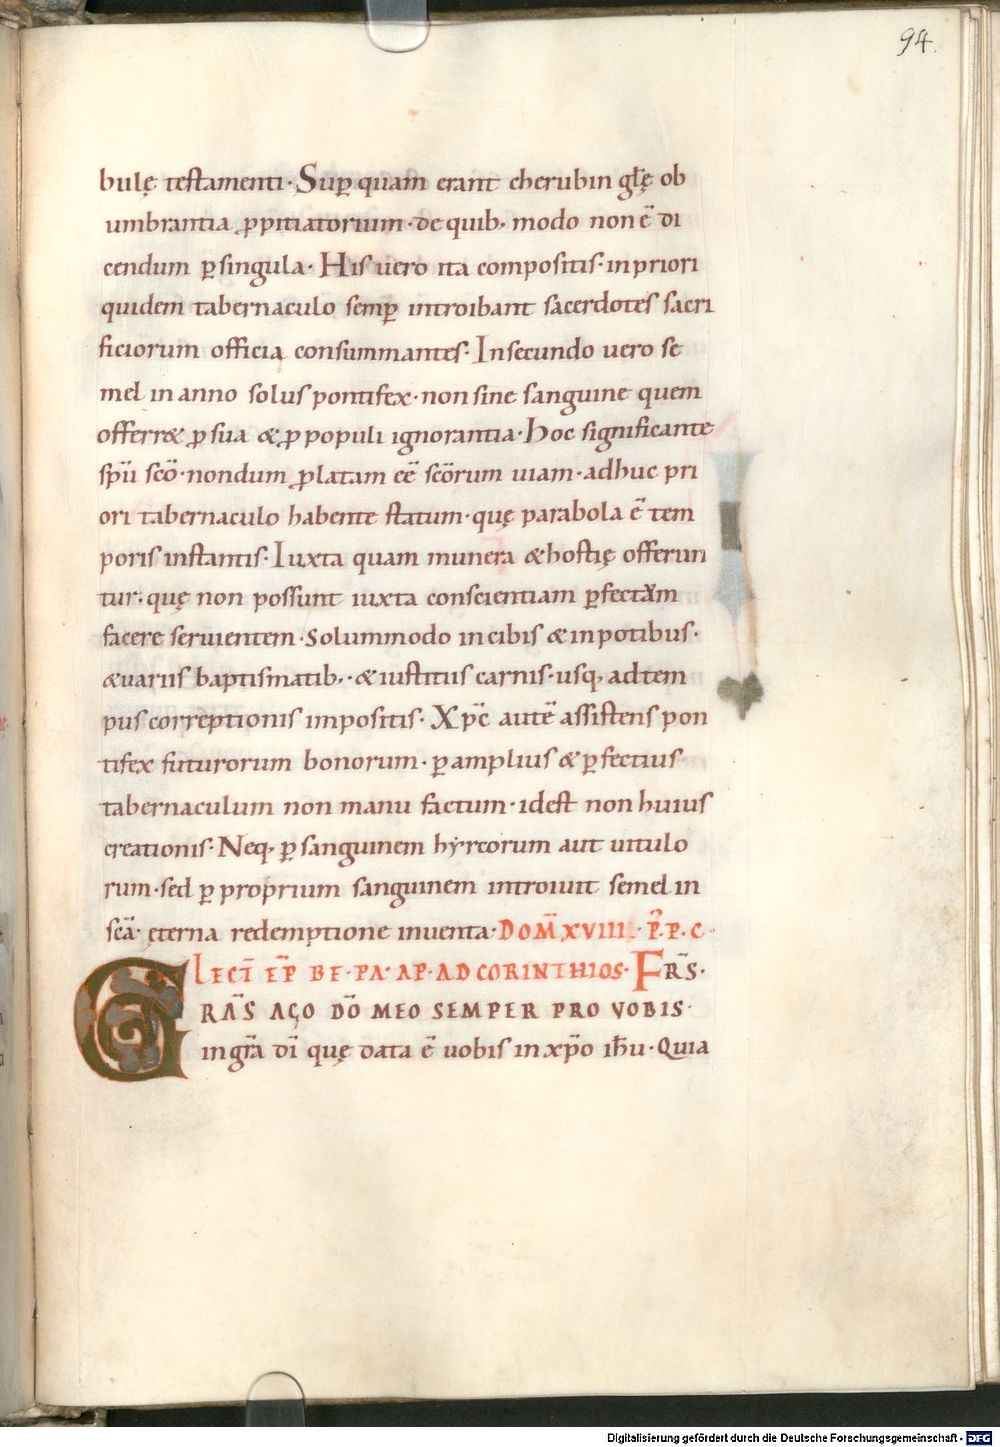 94.
bulę testamenti· Sup̱ quam erant cherubin gl̄ę ob
umbrantia ꝓpitiatorium· de quib; modo non ē di
cendum ꝑ singula· His uero ita compositis· in priori
quidem tabernaculo semꝑ introibant sacerdotes sacri
ficiorum officia consummantes· In secundo uero se
mel in anno solus pontifex· non sine sanguine quem
offerret ꝓ sua & ꝓ populi ignorantia· Hoc significante
sp̄u sc̄o· nondum ꝓlatam eē sc̄orum uiam· adhuc pri
ori tabernaculo habente statum· quę parabola ē tem
poris instantis· Iuxta quam munera & hostię offerun
tur· quę non possunt iuxta conscientiam ꝑfectum
facere seruientem· Solummodo in cibis & in potibus·
& uariis baptismatib;· & iustitiis carnis· usq; ad tem
pus correptionis impositis· Xp̄c autē assistens pon
tifex futurorum bonorum· ꝑ amplius & ꝑfectius
tabernaculum non manu factum· id est non huius
creationis· Neq; ꝑ sanguinem hyrcorum aut uitulo
rum· sed ꝑ proprium sanguinem introiuit semel in
sc̄a· ęterna redemptione inuenta· DOM̄ XVIIII· P̄·P·C·
LECT̄ EP̄ BE·PA·AP·AD CORINTHIOS· FR̄S·
GRĀS AGO DŌ MEO SEMPER PRO VOBIS·
in gr̄a dī quę data ē uobis in xp̄o ih̄u· Quia
Digitalisierung gefördert durch die Deutsche Forschungsgemeinschaft - DFG